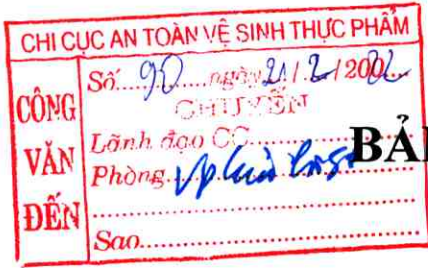 CHI CỤC AN TOÀN VỆ SINH THỰC PHẨM
CÔNG VĂN ĐẾN
Số.....90.....ngày 21/.2./2002
CHUYỂN
Lãnh đạo CC..................
Phòng
..................................
Sao..............................
BẢ